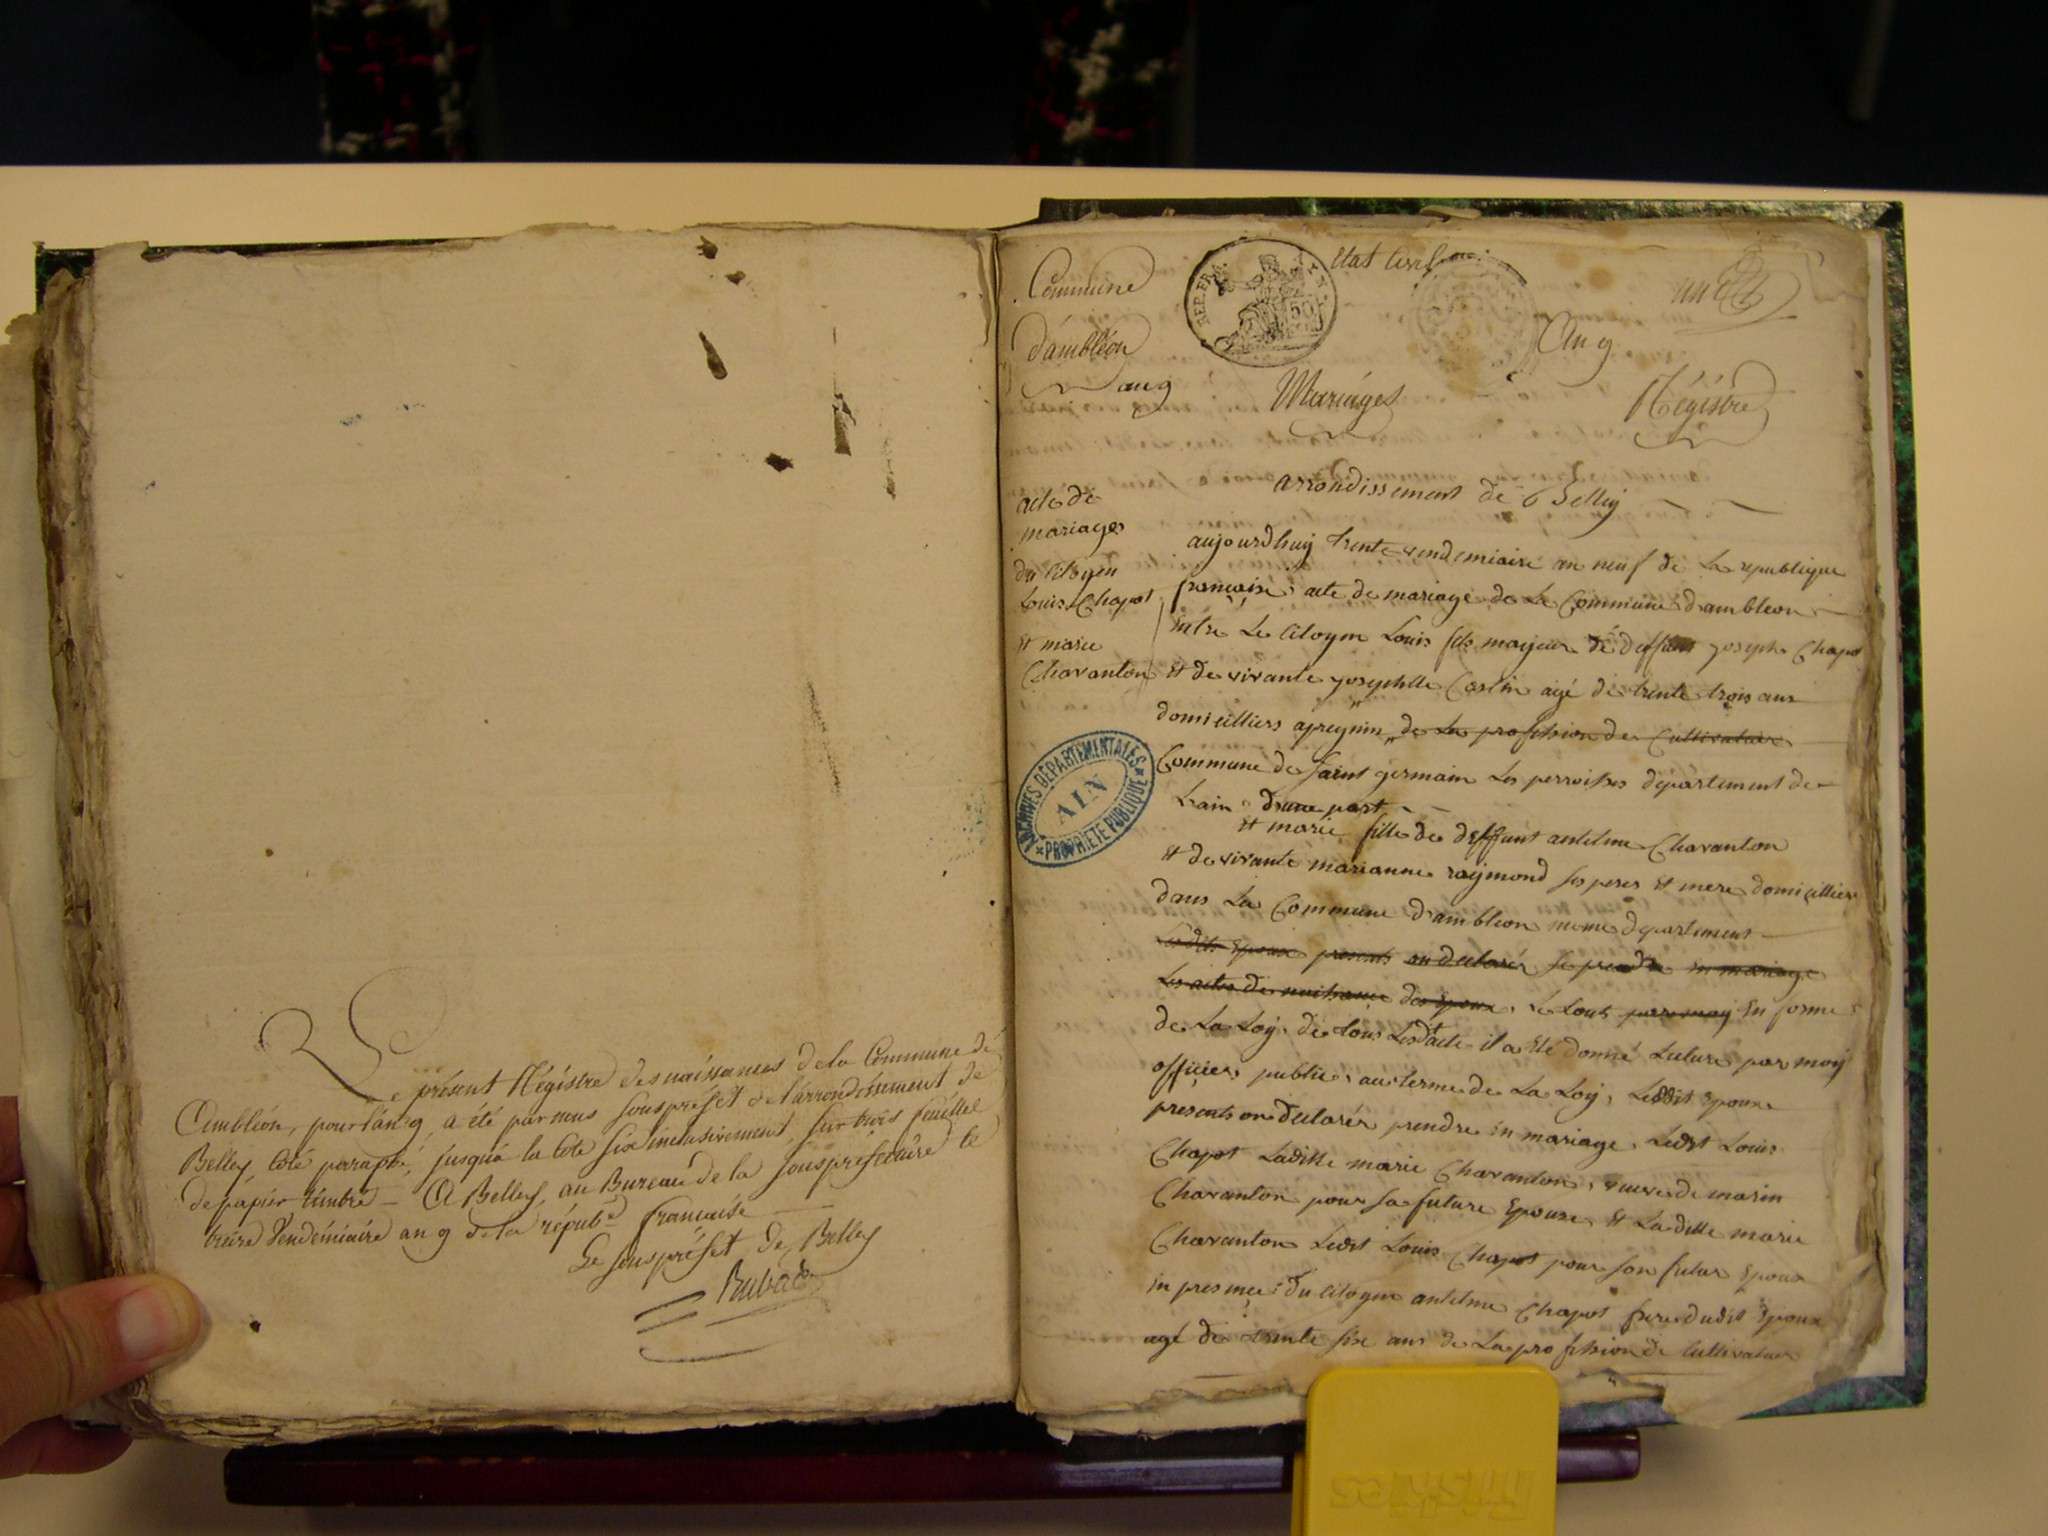 Le présent Régistre des naissances de la Commune de
Ambléon, pour l'an 9 a été par nous Souspréfet de l'arrondissement de
Belley, coté paraphé, jusqu'à la cote six inclusivement, sur trois feuilles
de papier timbré - A Belley, au Bureau de la souspréfecture le
treize Vendémiaire an 9 de la républ. française
Le souspréfet de Belley
Commune
d'ambléon
an 9
REP. FRA.
50
Etat Civil
un
An 9
Mariages
Régistre
arrondissement de Belley
acte de
mariage
du citoyen
Louis Chapot
et marie
Charanton
ARCHIVES DÉPARTEMENTALES
AIN
PROPRIÉTÉ PUBLIQUE
aujourdhuy trente vendemiaire an neuf de La republique
françoise, acte de mariage de La Commune dambleon
entre Le citoyen Louis fils mayeur de deffunt joseph Chapot
et de vivante josephtte Castin agé de trente trois ans
domicilliers apreynin de La profission de Cultivateur
Commune de saint germain Les perroisses département de
Lain dune part
et marie fille de deffunt antelme Charanton
et de vivante marianne raymond ses peres et mere domicillier
dans La Commune dambleon meme departement
Lesdits Epoux presents on declarér se prendre en mariage
Les actes de naissance des Epoux, Le tout en forme
de La Loy, de tous Lesdt acte il a Eté donné Lecture par moy
officier public, au terme de La Loy, Lesdit Epoux
presents on declarér prendre En mariage, Ledit Louis
Chapot Laditte marie Charanton, veuve de marin
Charanton pour sa future Epouse, et Laditte marie
Charanton Ledit Louis Chapot pour son futur Epoux
en presence du citoyen antelme Chapot frere dudit Epoux
agé de trente six ans de La profission de Cultivateur